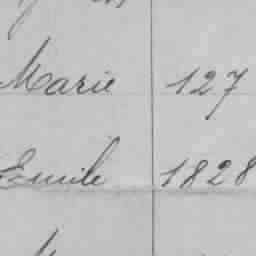 Marie 127
Emile 1828